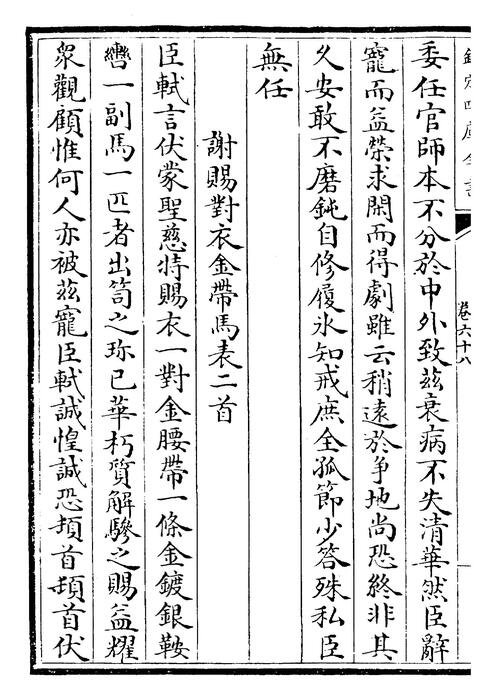 欽定四庫全書
卷六十八
委任官師本不分於中外致兹衰病不失清華然臣辭
寵而益榮求閑而得劇雖云稍遠於爭地尚恐終非其
久安敢不磨鈍自修履氷知戒庶全孤節少答殊私臣
無任
謝賜對衣金帶馬表二首
臣軾言伏蒙聖慈特賜衣一對金腰帶一條金鍍銀鞍
轡一副馬一匹者出笥之珍已華朽質解驂之賜益耀
衆觀顧惟何人亦被兹寵臣軾誠惶誠恐頓首頓首伏